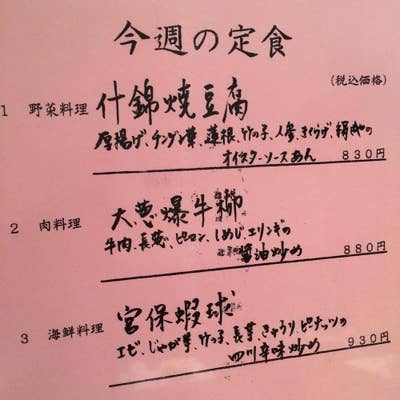 今週の定食
(税込価格)
1 野菜料理 什錦焼豆腐
厚揚げ、チンゲン菜、蓮根、竹の子、人参、きくらげ、絹さやの
オイスターソースあん 830円
2 肉料理 大葱爆牛柳
牛肉、長葱、ピーマン、しめじ、エリンギの
醤油炒め 880円
3 海鮮料理 宮保蝦球
エビ、じゃが芋、竹の子、長葱、きゅうり、ピーナッツの
四川辛味炒め 930円